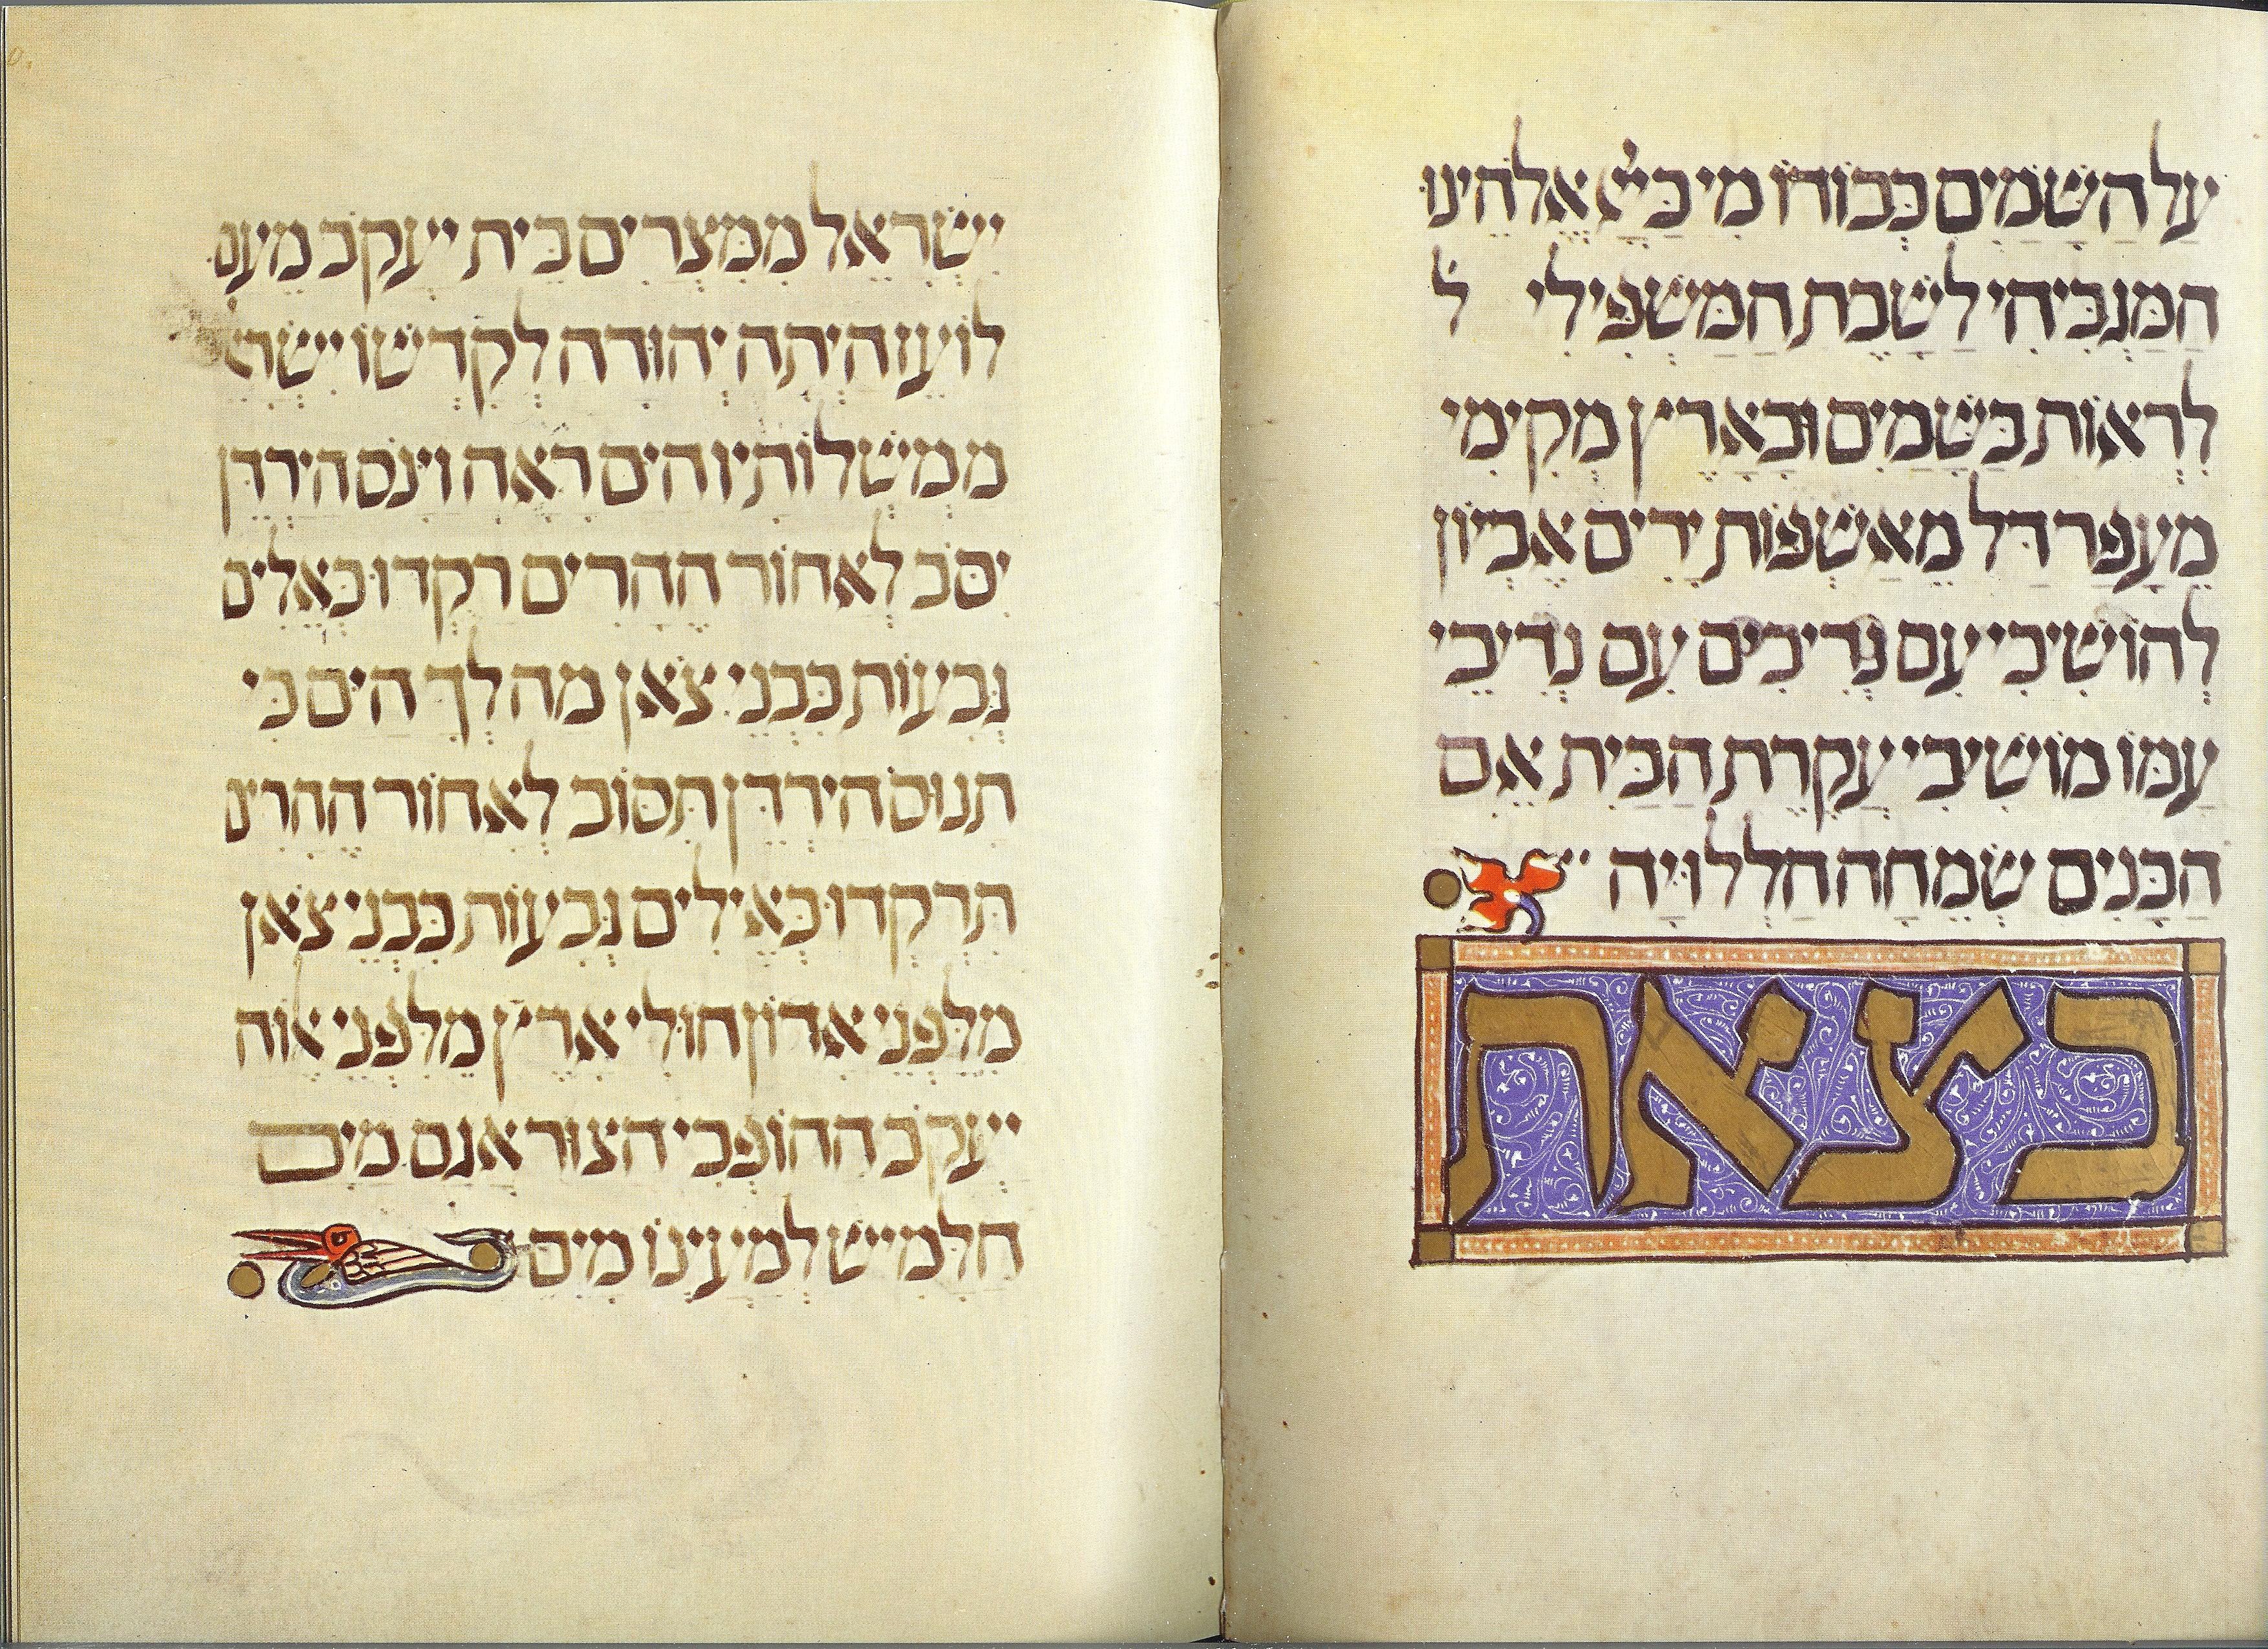 על הַשָּׁמַיִם כְּבוֹדוֹ מִי כַּייָ אֱלֹהֵינוּ
הַמַּגְבִּיהִי לָשֶׁבֶת הַמַּשְׁפִּילִי ל
לִרְאוֹת בַּשָּׁמַיִם וּבָאָרֶץ מְקִימִי
מֵעָפָר דַּל מֵאַשְׁפּוֹת יָרִים אֶבְיוֹן
לְהוֹשִׁיבִי עִם נְדִיבִים עִם נְדִיבֵי
עַמּוֹ מוֹשִׁיבִי עֲקֶרֶת הַבַּיִת אֵם
הַבָּנִים שְׂמֵחָה הַלְלוּיָהּ
בצאת
יִשְׂרָאֵל מִמִּצְרַיִם בֵּית יַעֲקֹב מֵעַם
לוֹעֵז הָיְתָה יְהוּדָה לְקָדְשׁוֹ יִשְׂרָא
מַמְשְׁלוֹתָיו הַיָּם רָאָה וַיָּנֹס הַיַּרְדֵּן
יִסֹּב לְאָחוֹר הֶהָרִים רָקְדוּ כְאֵלִים
גְּבָעוֹת כִּבְנֵי צֹאן מַה לְּךָ הַיָּם כִּי
תָנוּס הַיַּרְדֵּן תִּסּוֹב לְאָחוֹר הֶהָרִים
תִּרְקְדוּ כְאֵילִים גְּבָעוֹת כִּבְנֵי צֹאן
מִלִּפְנֵי אָדוֹן חוּלִי אָרֶץ מִלִּפְנֵי אֱלוֹהַּ
יַעֲקֹב הַהוֹפְכִי הַצּוּר אֲגַם מַיִם
חַלָּמִישׁ לְמַעְיְנוֹ מָיִם